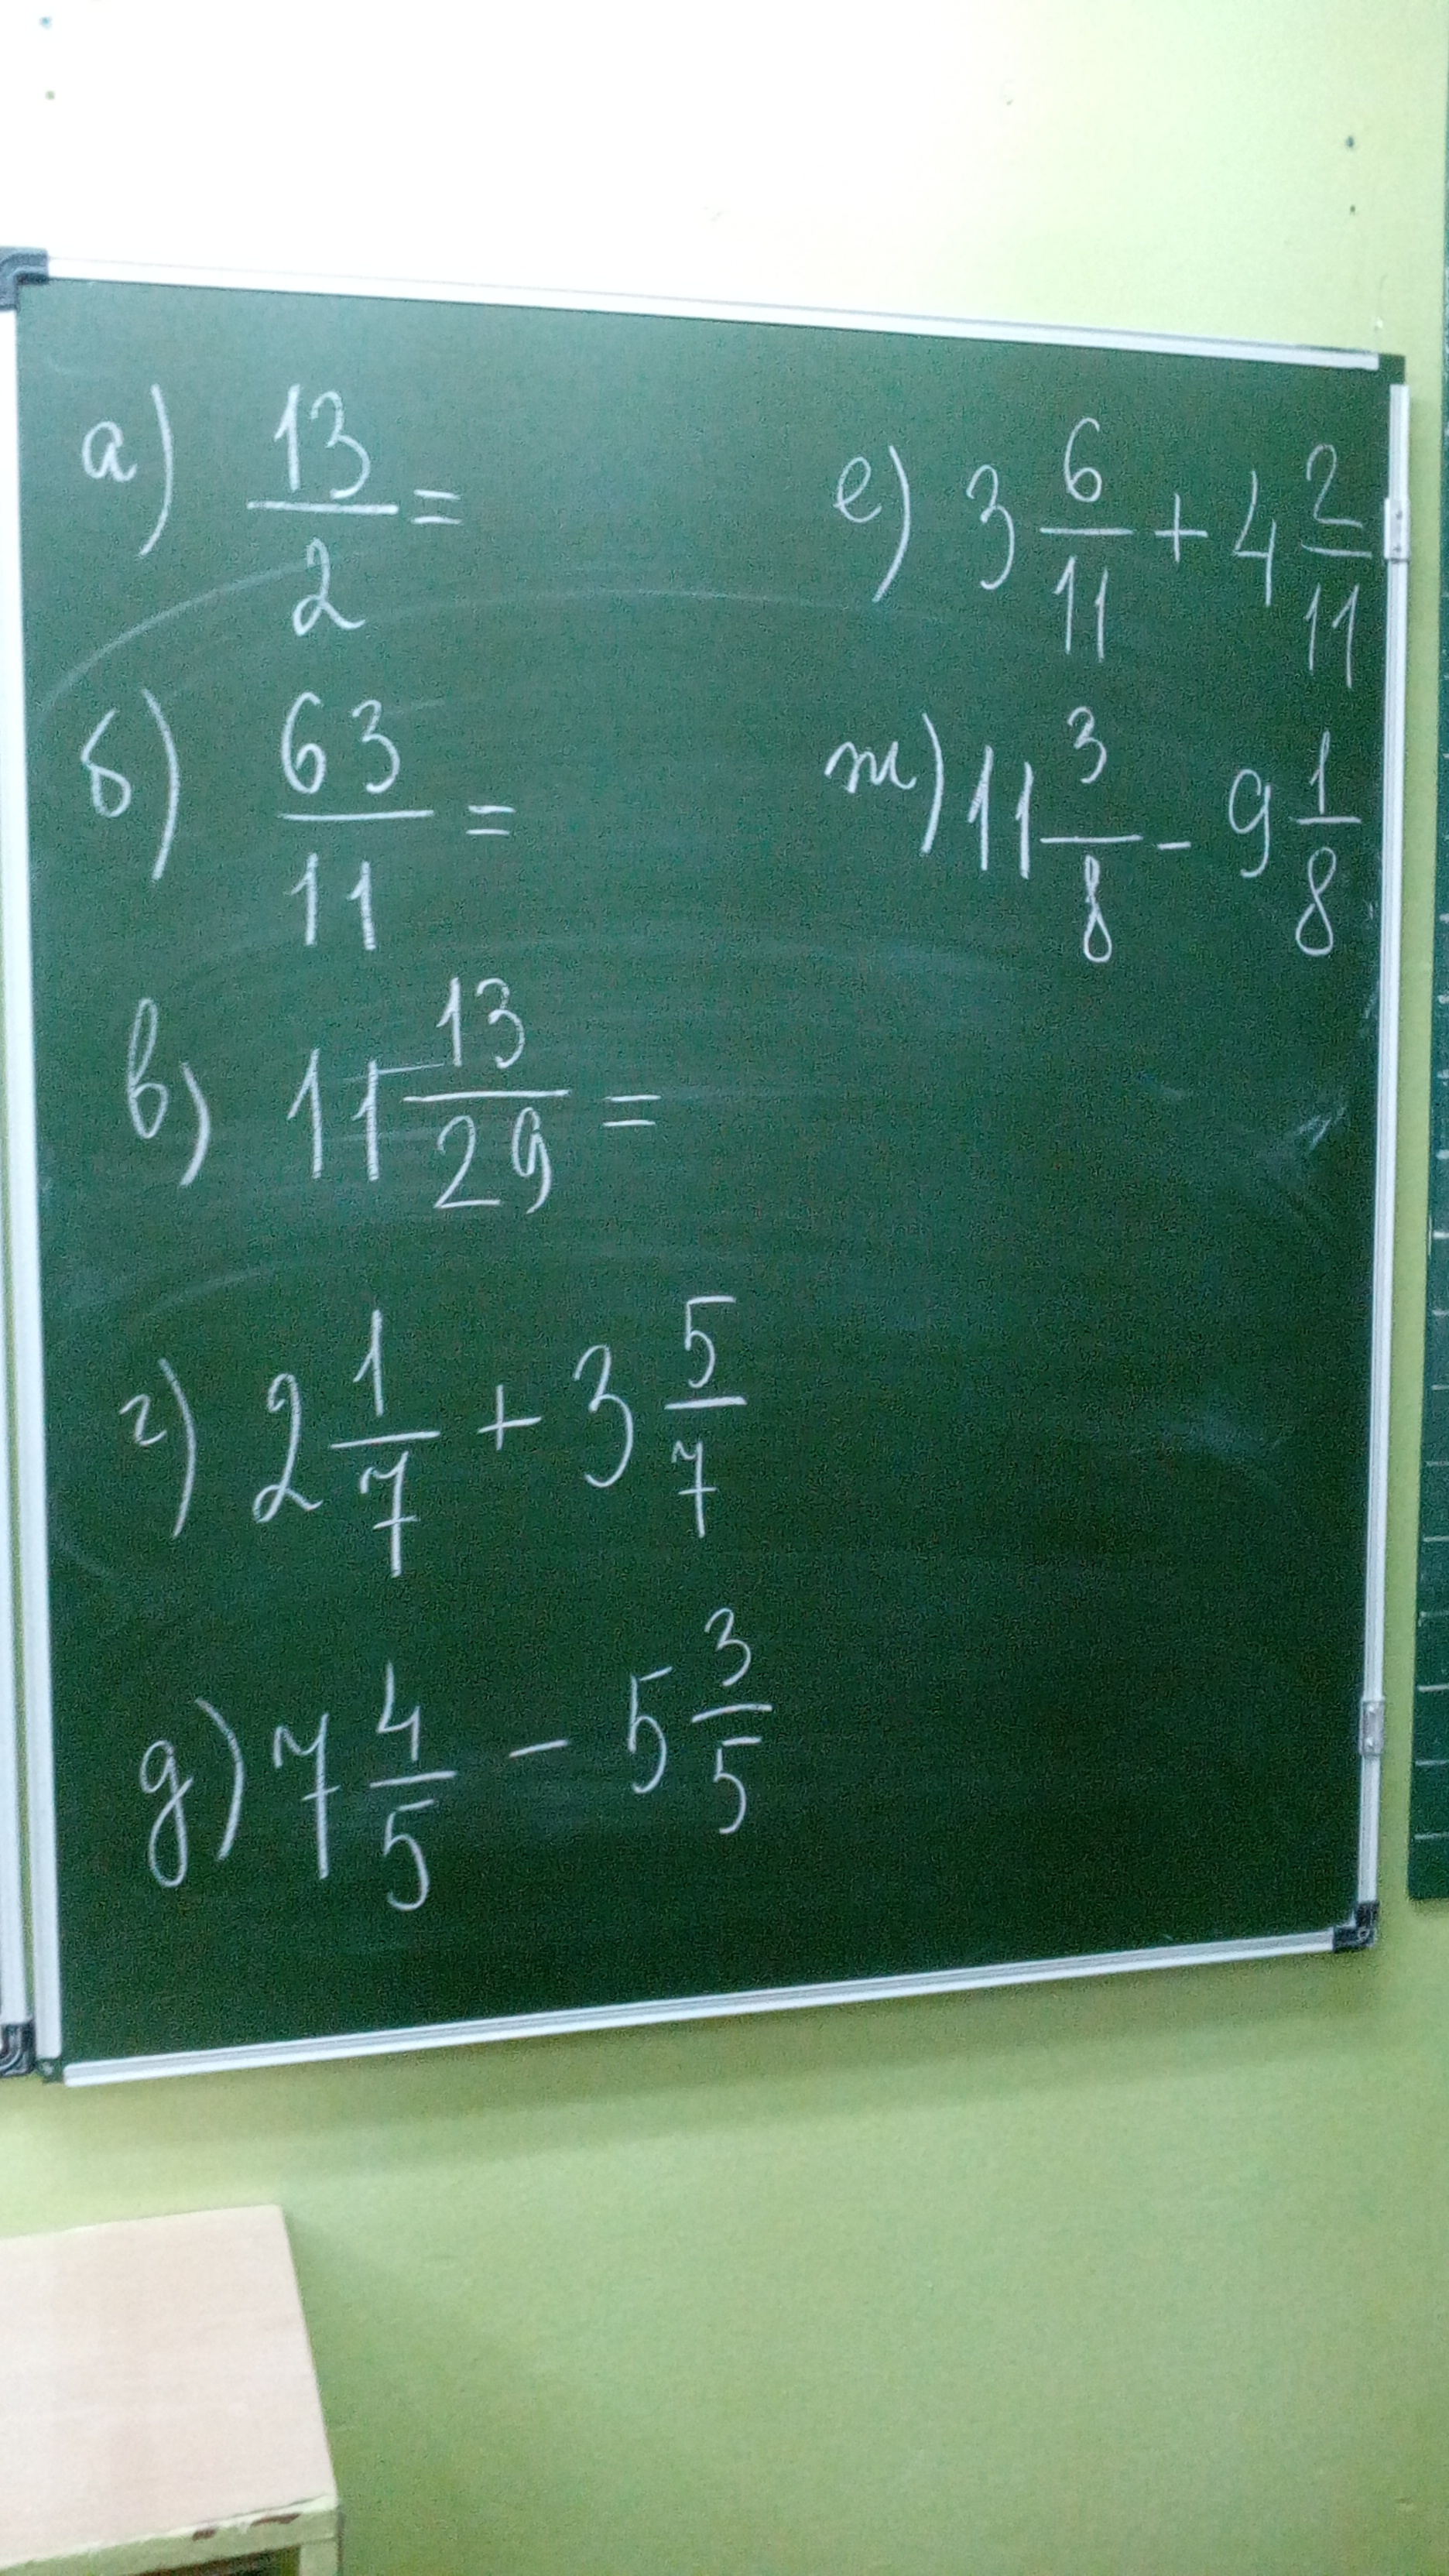 а) 13/2 =
б) 63/11 =
в) 11 13/29 =
г) 2 1/7 + 3 5/7
д) 7 4/5 - 5 3/5
е) 3 6/11 + 4 2/11
ж) 11 3/8 - 9 1/8